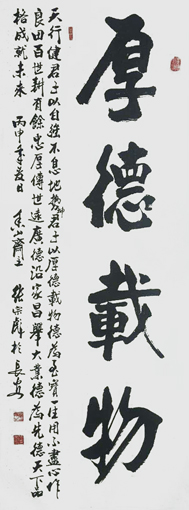 厚德載物
天行健君子以自強不息地勢坤君子以厚德載物德為至寶一生用不盡心作
良田百世耕有餘忠厚傳世遠廣德沿家昌舉大業德為先德天下品
格成就未來 丙申年夏日 山齋主 張宗彪於長安